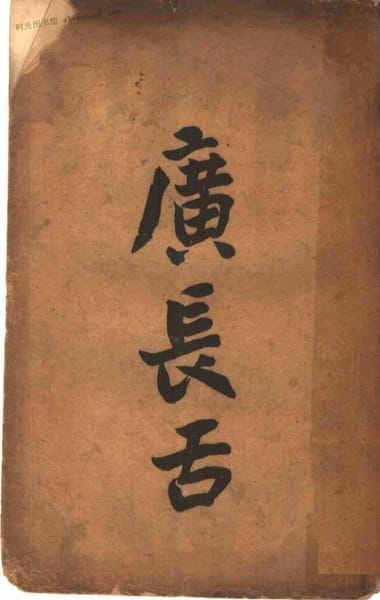 时光图书馆
廣長舌